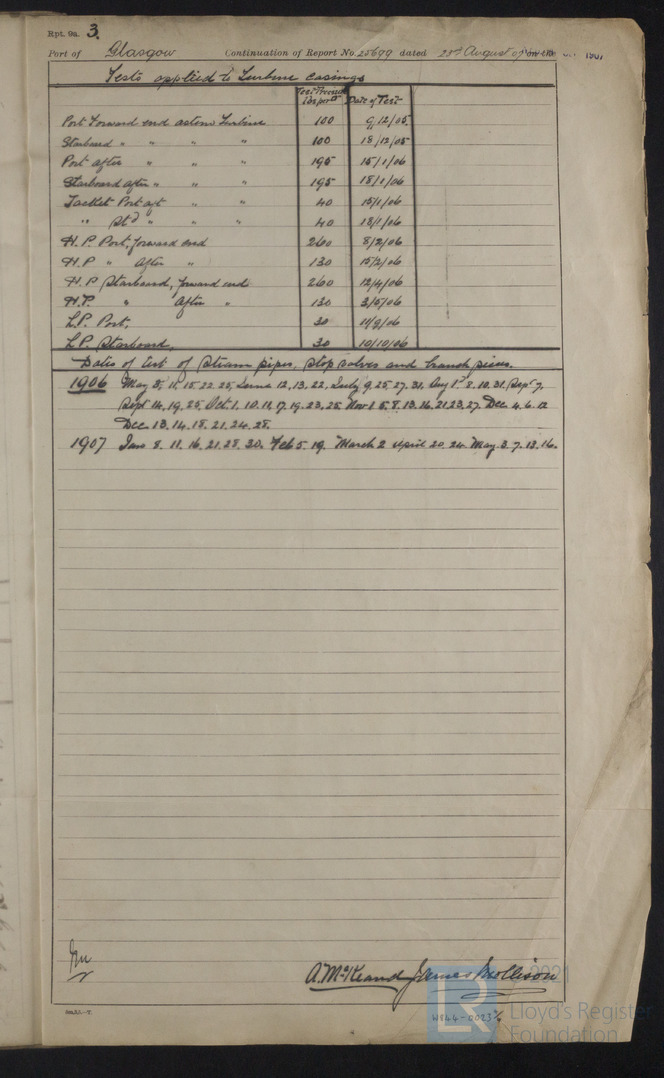 Rpt. 9a. 3.
Port of Glasgow Continuation of Report No. 25699 dated 23rd August 07 on the 1907
Tests applied to Turbine casings
Test Pressure lbs per □" Date of Test
Port Forward end astern Turbine 100 9/12/05
Starboard " " " " 100 18/12/05
Port after " " " 195 15/1/06
Starboard after " " " 195 18/1/06
Jacket Port aft " " 40 15/1/06
" Stbd " " " 40 18/1/06
H.P. Port, forward end 260 8/2/06
H.P " After " 130 15/2/06
H.P Starboard, forward end 260 12/4/06
H.P. " After " 130 3/5/06
L.P. Port, 30 11/9/06
L.P. Starboard. 30 10/10/06
Dates of test of Steam pipes, stop valves and branch pieces.
1906 May 3, 11, 15. 22. 25, June 12, 13, 22, July 9. 25. 27. 31. Aug 1st 8. 10. 31. Sept 7,
Sept 14, 19. 25. Oct. 1. 10. 11. 17. 19. 23. 25. Nov 1. 5. 8. 13. 16. 21. 23. 27. Dec. 4. 6. 12
Dec. 13. 14. 18. 21. 24. 28.
1907 Jan 8. 11. 16. 21. 28. 30. Feb 5. 19. March 2 April 20. 24. May. 3. 7. 13. 16.
A. McKeand James Mollison
2021
W944-0023
Lloyd's Register
Foundation